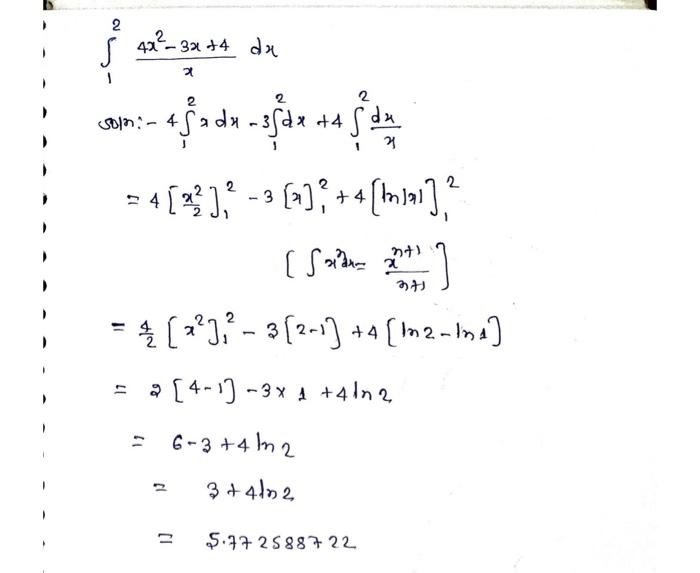 ∫₁² (4x² - 3x + 4)/x dx
soln:- 4∫₁² x dx - 3∫₁² dx + 4∫₁² dx/x
= 4[x²/2]₁² - 3[x]₁² + 4[ln|x|]₁²
[∫xⁿdx = xⁿ⁺¹/n+1]
= 4/2 [x²]₁² - 3[2-1] + 4[ln2 - ln1]
= 2[4-1] - 3×1 + 4ln2
= 6-3+4ln2
= 3+4ln2
= 5.772588722